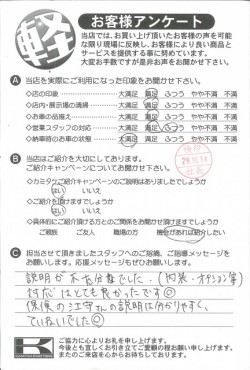 軽
お客様アンケート
当店では、お買い上げ頂いたお客様の声を可能
な限り現場に反映し、お客様により良い商品と
サービスを提供する事に努めています。
大変お手数ですが是非お声をお聞かせ下さい。
A 当店を実際にご利用になった印象をお聞かせ下さい。
◇店の印象 大満足 満足 ふつう やや不満 不満
◇店内・展示場の清掃 大満足 満足 ふつう やや不満 不満
◇お車の品揃え 大満足 満足 ふつう やや不満 不満
◇営業スタッフの対応 大満足 満足 ふつう やや不満 不満
◇納車時のお車の状態 大満足 満足 ふつう やや不満 不満
B 当店はご紹介を大切にしております。
ご紹介キャンペーンについてお聞かせ下さい。
◇カミタケご紹介キャンペーンのご説明はありましたでしょうか
はい いいえ
◇ご紹介を頂けますでしょうか
はい いいえ
◇具体的にご紹介頂ける方とのご関係をお聞かせ頂けますでしょうか
ご親族 ご友人 職場の方 機会があれば紹介したい
C 担当させて頂きましたスタッフへのご指摘、ご指導メッセージを
お願いします。応援メッセージもぜひお願いします。
説明が不充分でした。(内装・オプション等)
対応はとても良かったです
保険の江守さんの説明は分かりやすく、
ていねいでした
ご協力に心よりお礼を申し上げます。
今後とも宜しくお引き立てご愛顧の程お願い申し上げます。
またのご来店を心からお待ちしております。